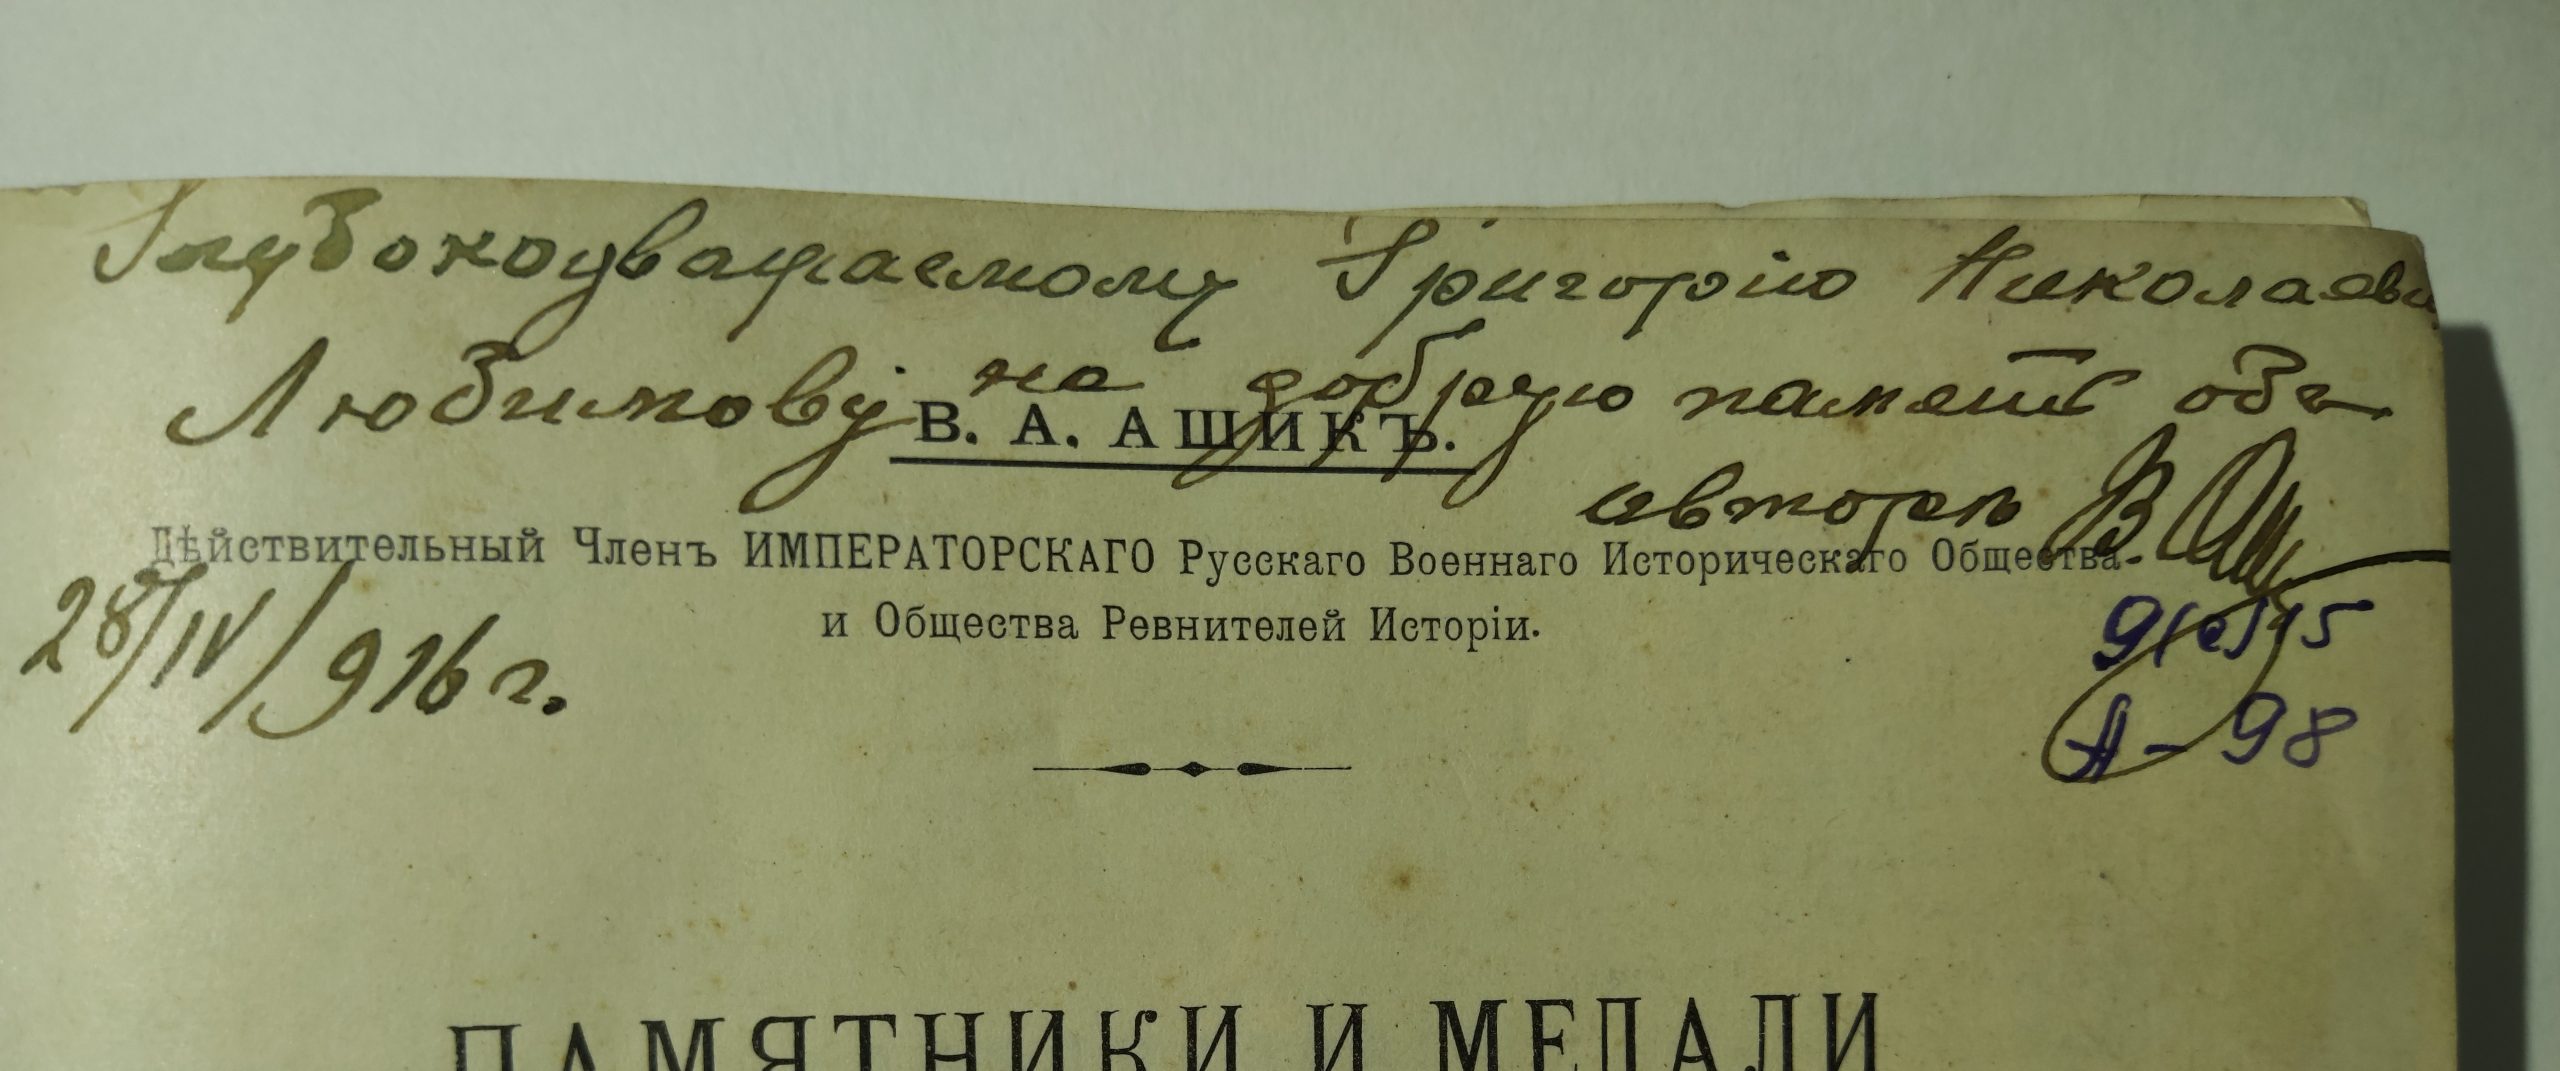 Глубокоуважаемому Григорію Николаеви
Любимову на добрую память объ
авторѣ В. Аш
В. А. АШИКЪ.
Дѣйствительный Членъ ИМПЕРАТОРСКАГО Русскаго Военнаго Историческаго Общества
и Общества Ревнителей Исторіи.
28/IV/916 г.
9(с)15
А-98
ПАМЯТНИКИ И МЕДАЛИ